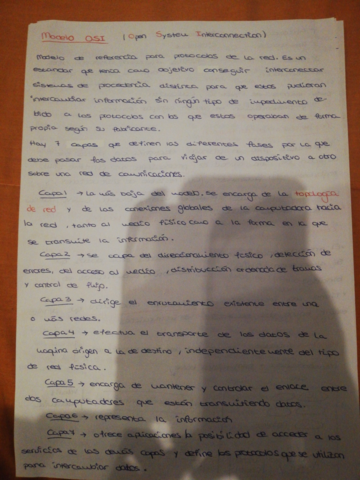 Modelo OSI (Open System Interconnection)
Modelo de referencia para protocolos de la red. Es un
estandar que tenía como objetivo conseguir interconectar
sistemas de procedencia distinta para que estos pudieran
intercambiar información sin ningún tipo de impedimento de-
bido a los protocolos con los que estos operaban de forma
propia según su fabricante.
Hay 7 capas que definen las diferentes fases por la que
debe pasar los datos para viajar de un dispositivo a otro
sobre una red de comunicaciones.
Capa 1 → la más baja del modelo, se encarga de la topología
de red y de las conexiones globales de la computadora hacia
la red, tanto al medio físico como a la forma en la que
se transmite la información.
Capa 2 → se ocupa del direccionamiento físico, detección de
errores, del acceso al medio, distribución ordenada de tramas
y control de flujo.
Capa 3 → dirige el enrutamiento existente entre una
o más redes.
Capa 4 → efectua el transporte de los datos de la
maquina origen a la de destino, independientemente del tipo
de red física.
Capa 5 → encarga de mantener y controlar el enlace entre
dos computadores que están transmitiendo datos.
Capa 6 → representa la información
Capa 7 → ofrece aplicaciones la posibilidad de acceder a los
servicios de las demás capas y define los protocolos que se utilizan
para intercambiar datos.